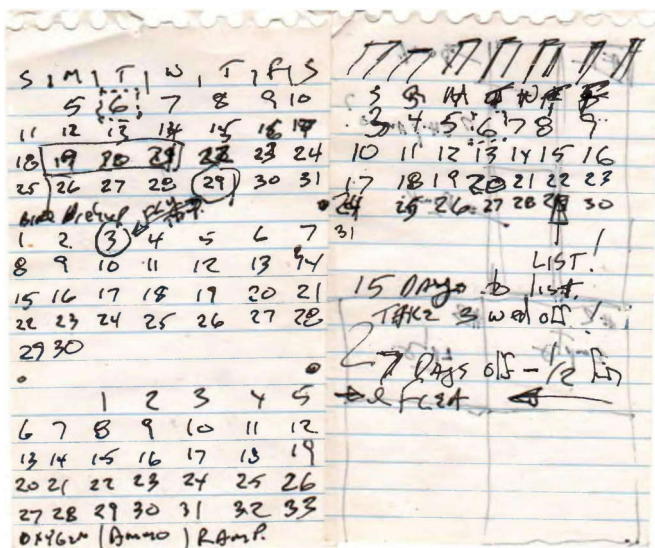 S | M | T | W | T | F | S
5 6 7 8 9 10
11 12 13 14 15 16 17
18 19 20 21 22 23 24
25 26 27 28 29 30 31
1 2 3 4 5 6 7
8 9 10 11 12 13 14
15 16 17 18 19 20 21
22 23 24 25 26 27 28
29 30
1 2 3 4 5
6 7 8 9 10 11 12
13 14 15 16 17 18 19
20 21 22 23 24 25 26
27 28 29 30 31 32 33
OXYGEN | AMMO | RAMP.
3 4 5 6 7 8 9
10 11 12 13 14 15 16
17 18 19 20 21 22 23
24 25 26 27 28 29 30
31
LIST!
15 DAYS to list.
TAKE 3 wed off!
7 DAYS off - 12